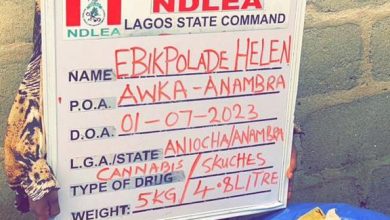 NDLEA
NDLEA LAGOS STATE COMMAND
NAME EBIKPOLADE HELEN
P.O.A. AWKA - ANAMBRA
D.O.A. 01-07-2023
L.G.A./STATE ANIOCHA/ANAMBRA
TYPE OF DRUG CANNABIS / SKUCHES
WEIGHT: 5KG / 4.8LITRE